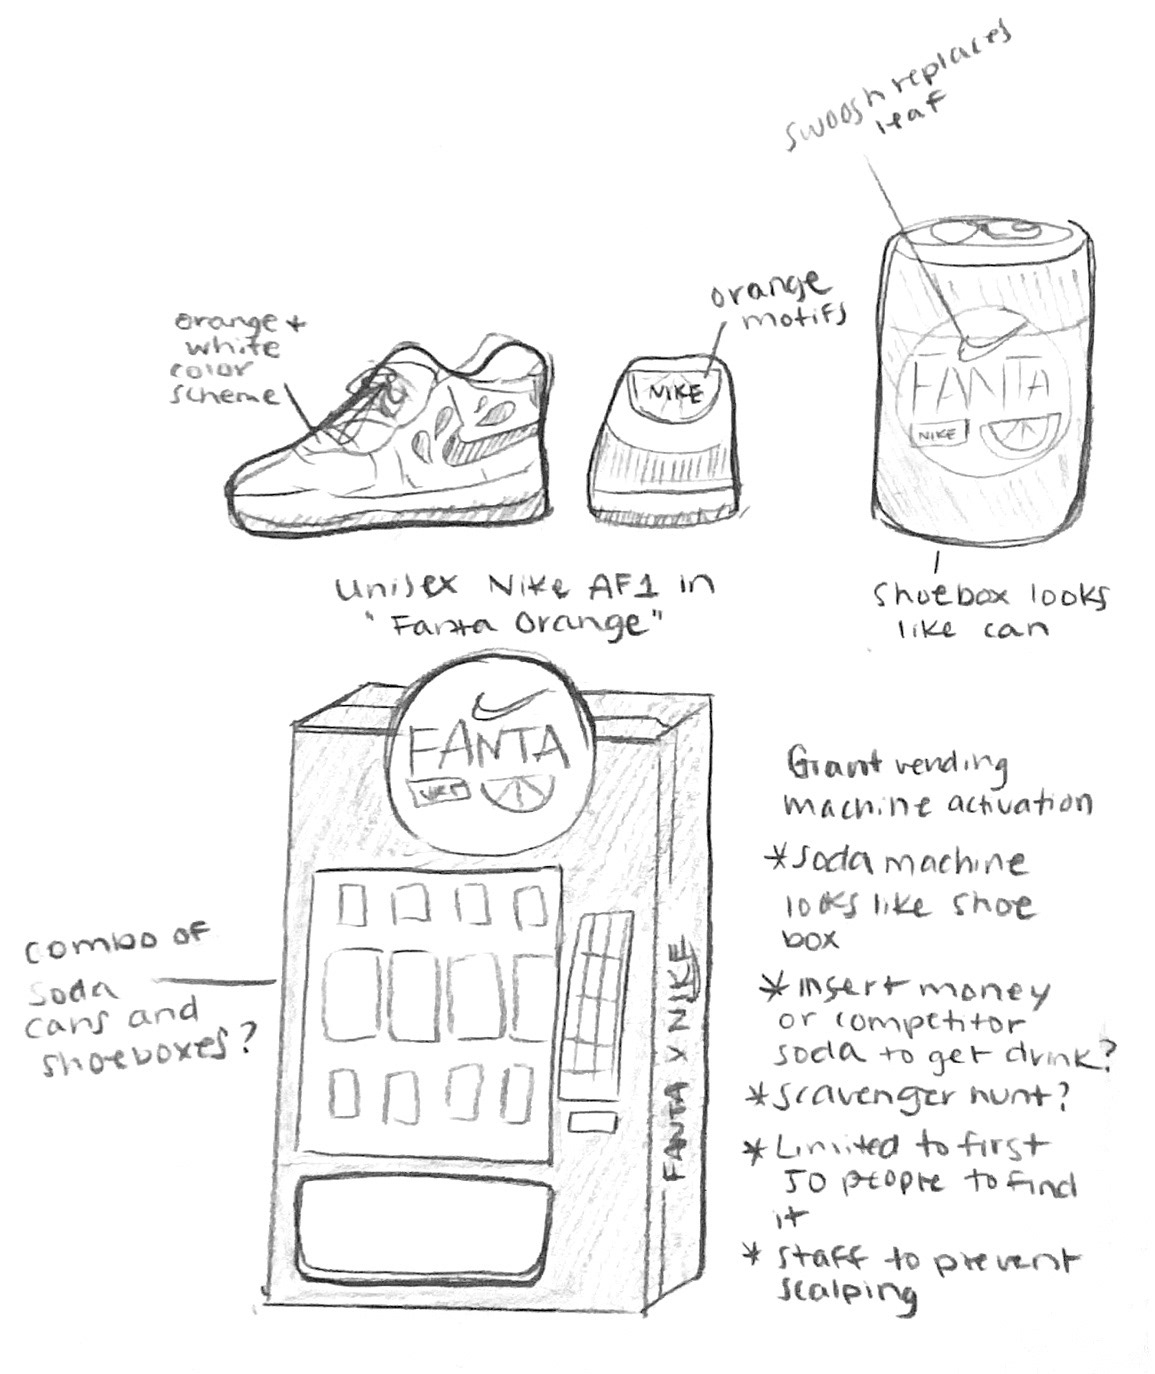 swoosh replaces
leaf
orange
motifs
orange +
white
color
scheme
NIKE
FANTA
NIKE
Unisex Nike AF1 in
"Fanta Orange"
Shoebox looks
like can
FANTA
Giant vending
machine activation
*soda machine
looks like shoe
box
*insert money
or competitor
soda to get drink?
*scavenger hunt?
*Limited to first
50 people to find
it
*staff to prevent
scalping
combo of
soda
cans and
shoeboxes?
FANTA X NIKE